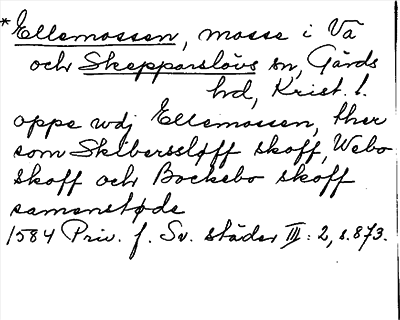 *Ellemossen, mosse i Vä
och Skepparslövs sn, Gärds
hd, Krist. l.
oppe wdj Ellemossen, ther
som Skiberssløff skoff, Webo
skoff och Bockebo skoff
samenstøde
1584 Priv. f. Sv. städer III: 2, s. 873.